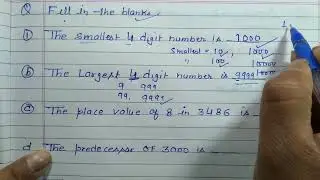 Q Fill in the blanks
① The smallest 4 digit number is 1000
Smallest = 10, 1000
" 100 10000
ⓑ The Largest 4 digit number is 9999
9 999
99, 9999
ⓒ The place value of 8 in 3486 is
d The predecessor OF 3000 is